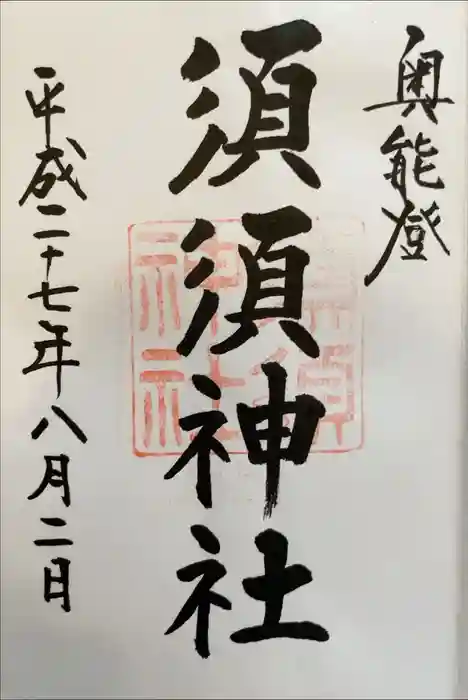 奥能登
須須神社
平成二十七年八月二日
須須
神社